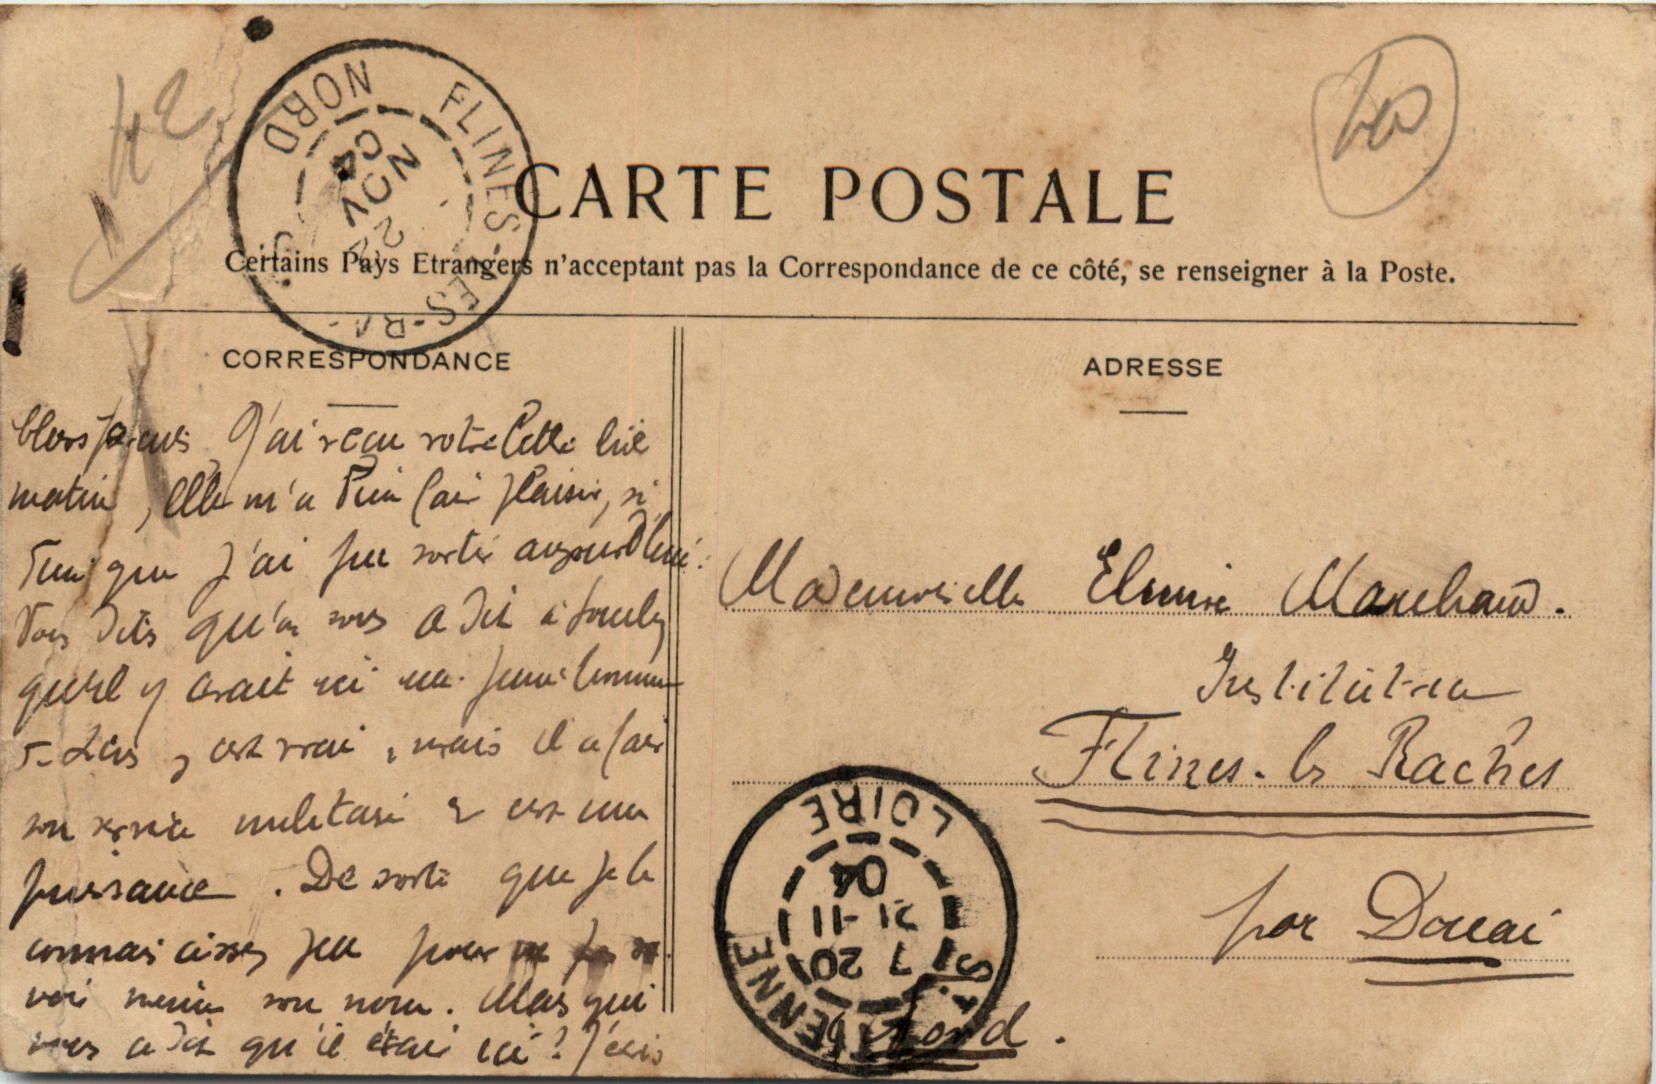 42
40
NORD FLINES-LES-RA
NOV
04
CARTE POSTALE
Certains Pays Etrangers n'acceptant pas la Correspondance de ce côté, se renseigner à la Poste.
CORRESPONDANCE
ADRESSE
J'ai reçu votre lettre
matin, elle m'a bien fait plaisir, si
bien que j'ai pu sortir aujourd'hui.
Vous dites qu'on vous a dit à
qu'il y avait ici un jeune homme
c'est vrai, mais il a fait
son service militaire & est une
. De sorte que je le
connais assez peu pour ne pas sa
voir même son nom. Mais qui
vous a dit qu'il était ici ? J'écris
Mademoiselle Elmire Marchand.
Institutrice
Flines-les Raches
par Douai
Nord.
ST ETIENNE LOIRE
7 20
21-11
04